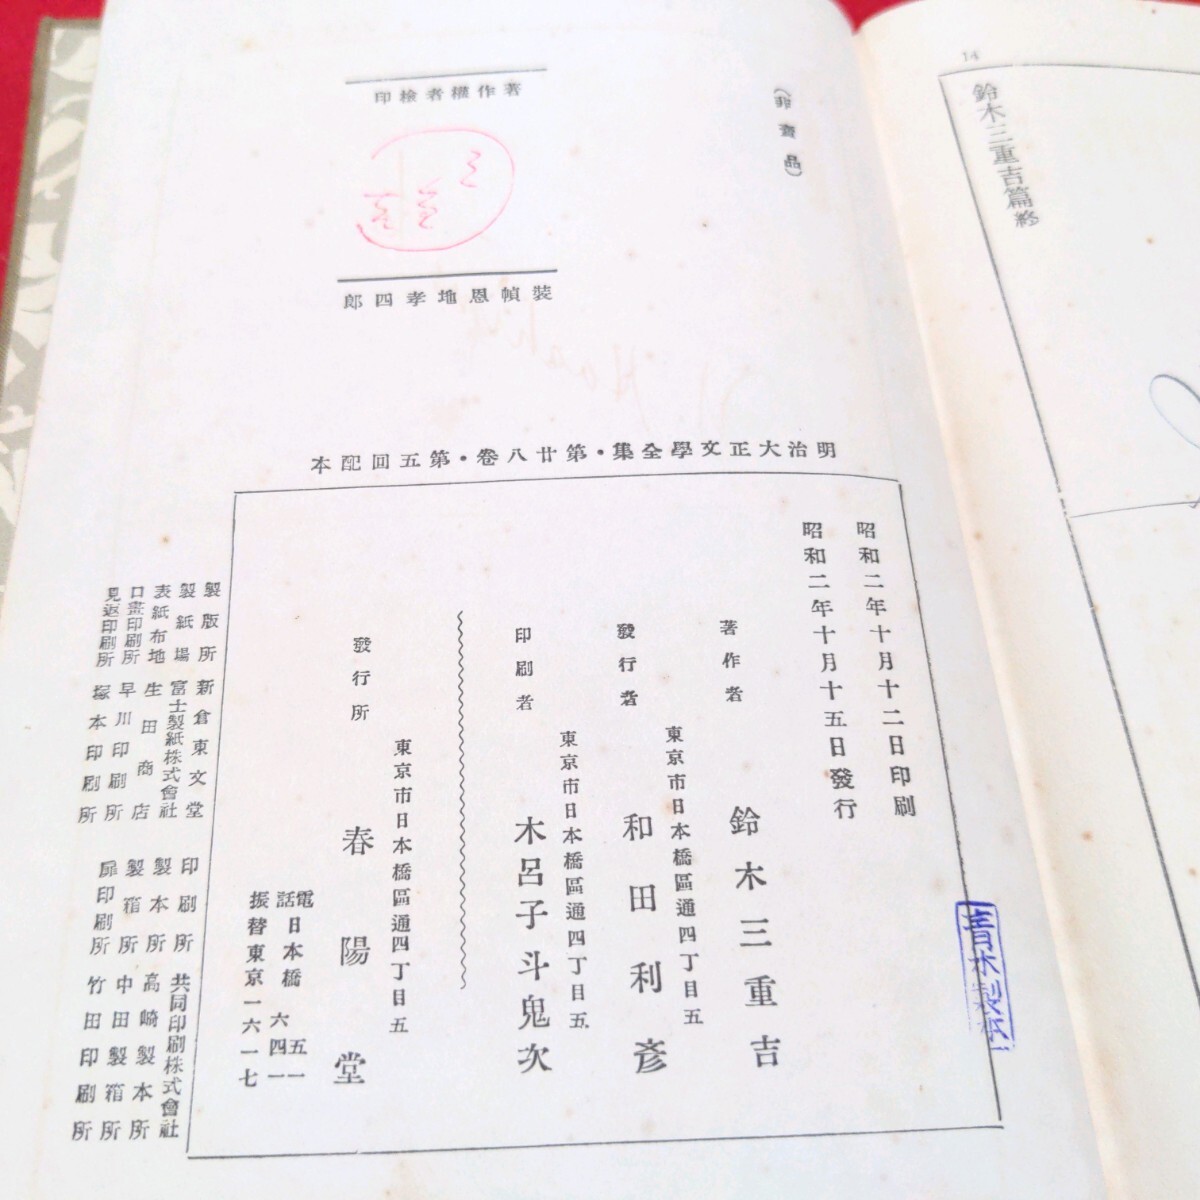 14
鈴木三重吉篇終
(非賣品)
著作權者檢印
三
重
吉
裝幀恩地孝四郎
明治大正文學全集・第廿八卷・第五回配本
昭和二年十月十二日印刷
昭和二年十月十五日發行
著作者
鈴木三重吉
東京市日本橋區通四丁目五
發行者
和田利彥
東京市日本橋區通四丁目五
印刷者
木呂子斗鬼次
東京市日本橋區通四丁目五
發行所
春陽堂
電話日本橋
五一
六四一
振替東京一六一一七
製版所 新倉東文堂
製紙場 富士製紙株式會社
表紙布地 生田商店
口畫印刷所 早川印刷所
見返印刷所 塚本印刷所
印刷所 共同印刷株式會社
製本所 高崎製本所
製箱所 中田製箱所
扉印刷所 竹田印刷所
青木製本